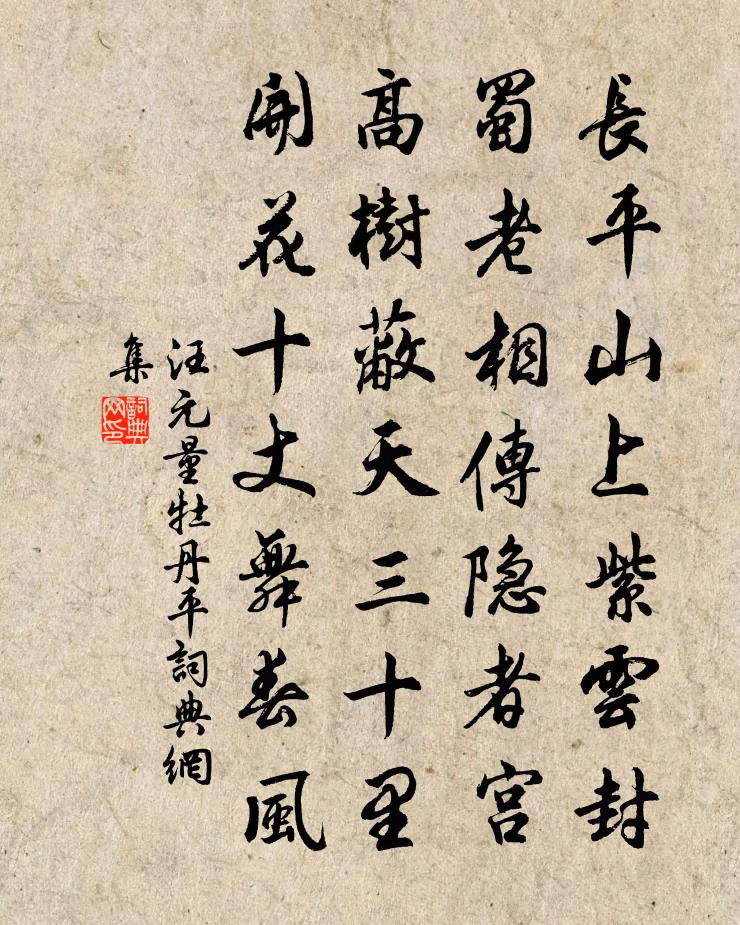 長平山上紫雲封
蜀老相傳隐者宫
高樹蔽天三十里
開花十丈舞春風
汪元量牡丹平詞典網
集
詞典
网印